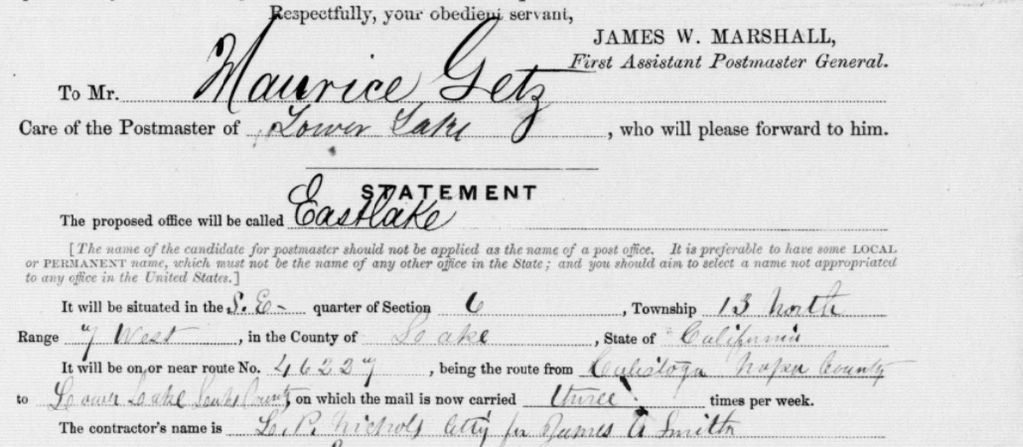 Respectfully, your obedient servant,
JAMES W. MARSHALL,
First Assistant Postmaster General.
To Mr. Maurice Getz
Care of the Postmaster of Lower Lake, who will please forward to him.
STATEMENT
The proposed office will be called Eastlake
[The name of the candidate for postmaster should not be applied as the name of a post office. It is preferable to have some LOCAL
or PERMANENT name, which must not be the name of any other office in the State; and you should aim to select a name not appropriated
to any office in the United States.]
It will be situated in the S. E- quarter of Section 6, Township 13 North
Range 7 West, in the County of Lake, State of California
It will be on or near route No. 46227, being the route from Calistoga Napa County
to Lower Lake County, on which the mail is now carried three times per week.
The contractor's name is L. P. Nichols Atty for James A Smith